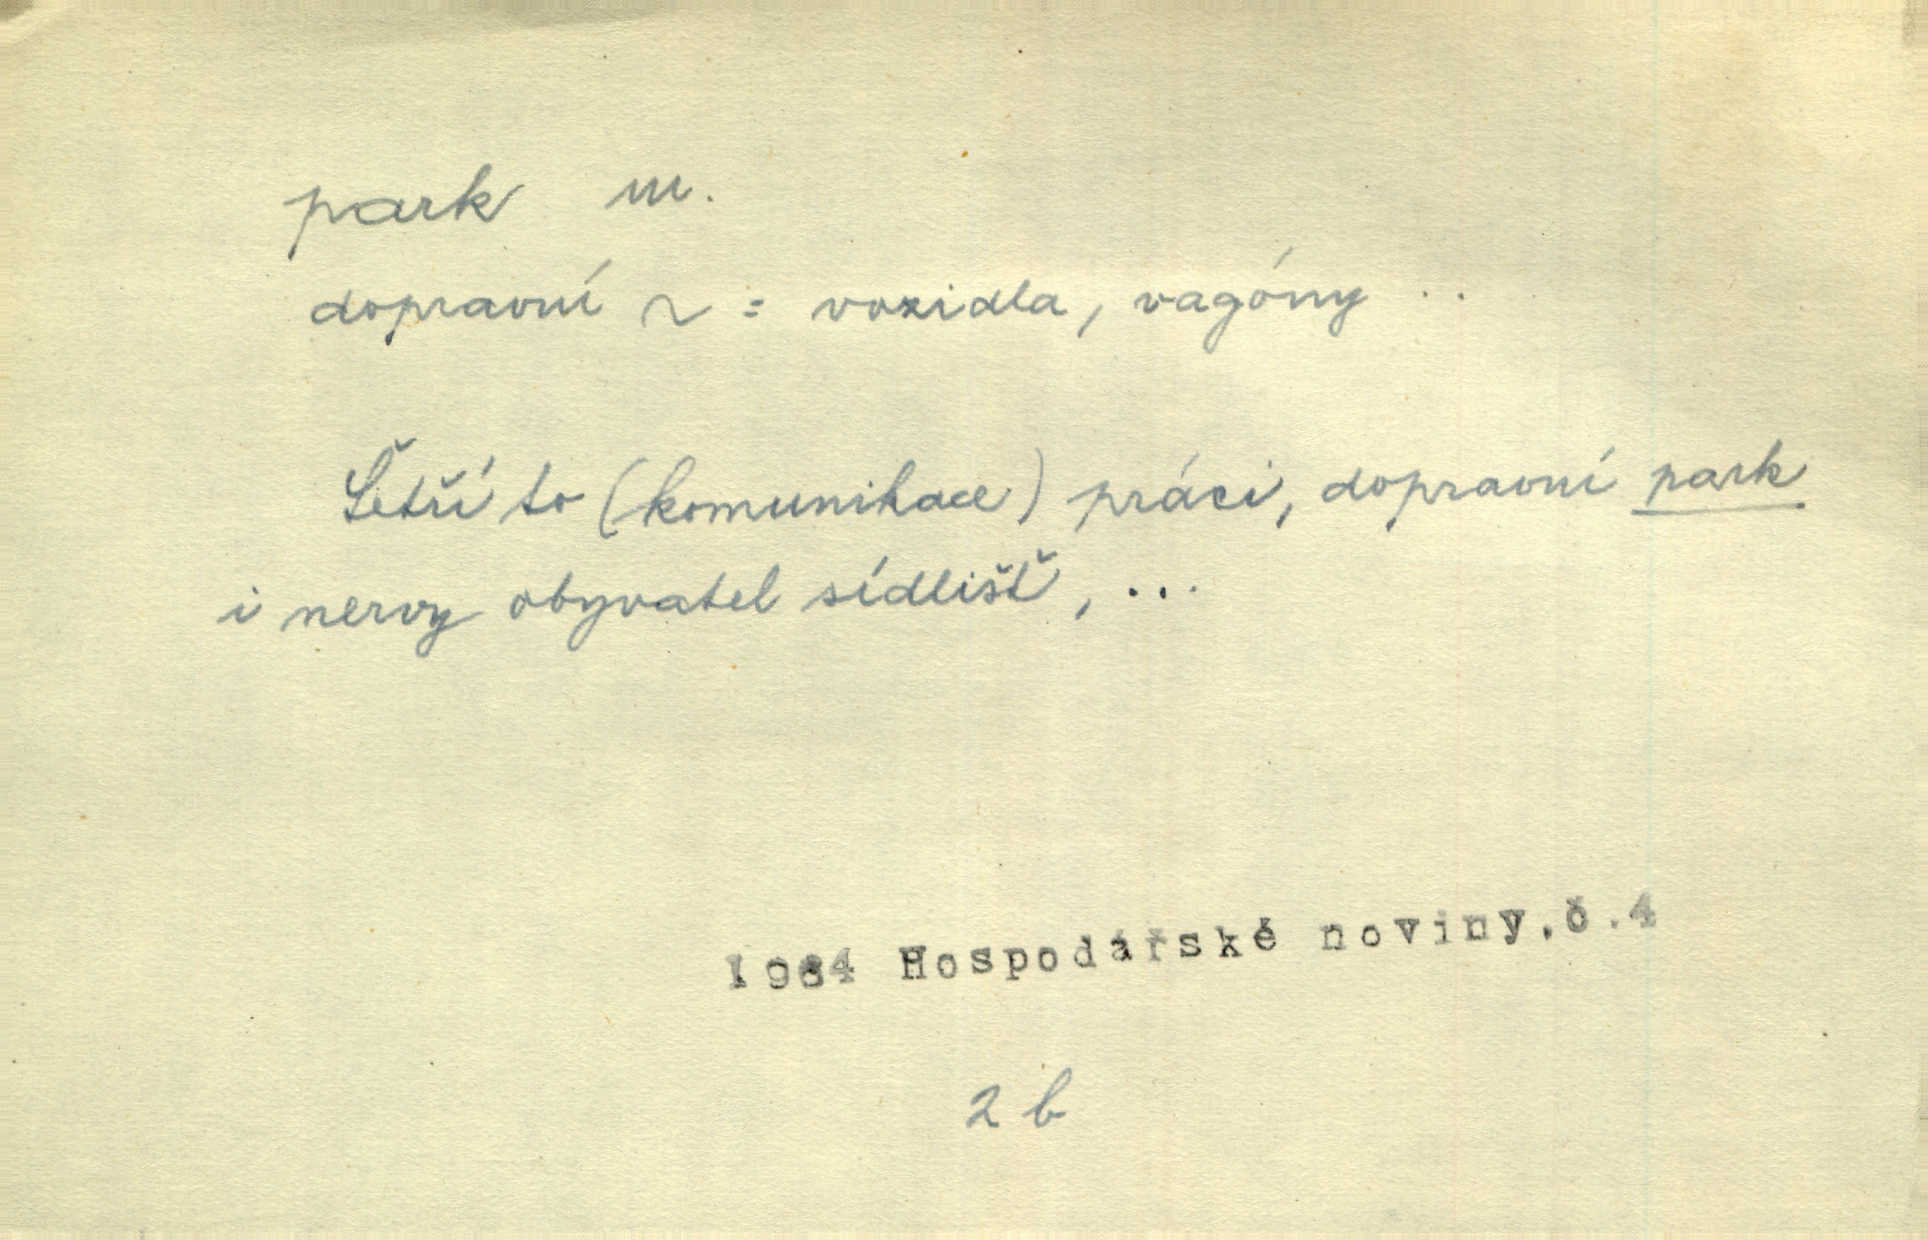 park m.
dopravní ~ = vozidla, vagóny ..
Šetří to (komunikace) práci, dopravní park
i nervy obyvatel sídlišť, ...
1984 Hospodářské noviny, č.4
2 b